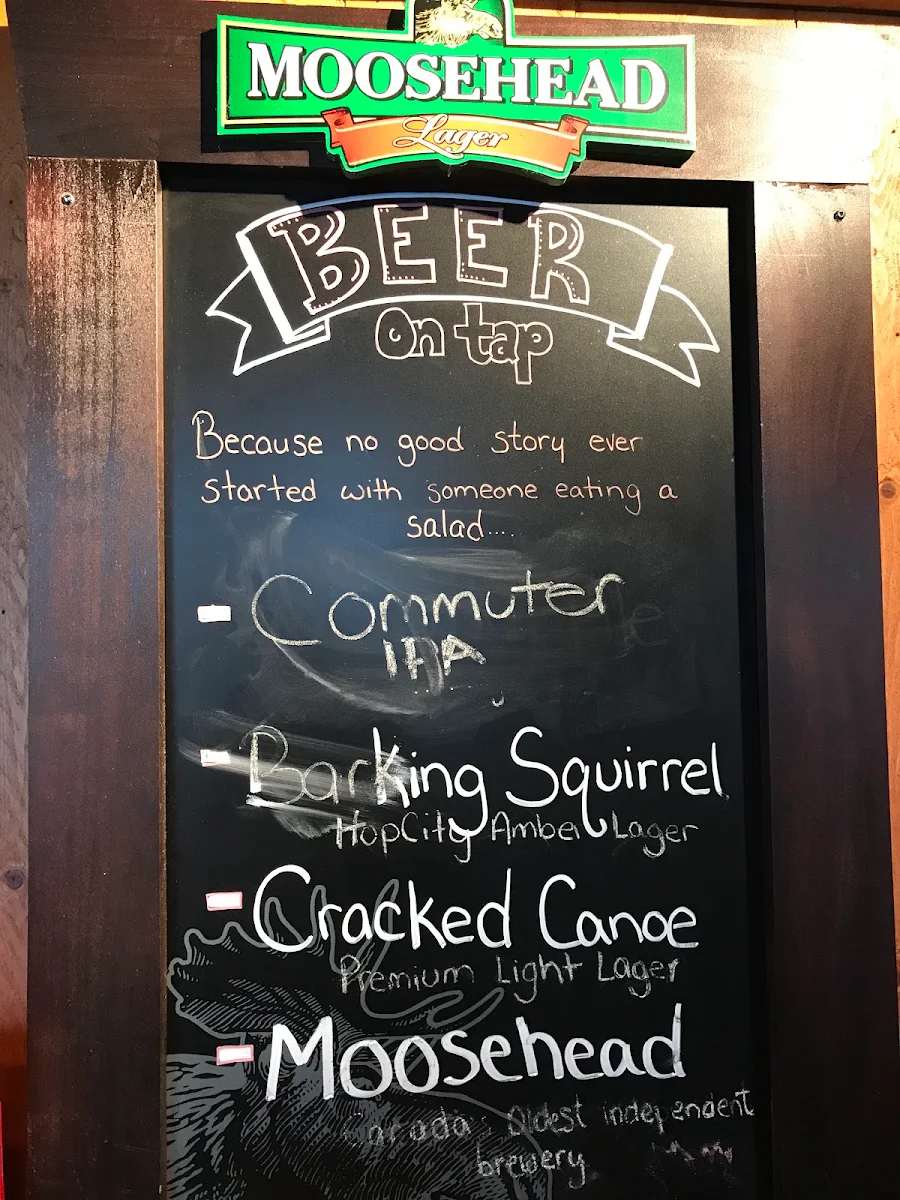 MOOSEHEAD
Lager
BEER
On tap
Because no good story ever
started with someone eating a
salad....
Commuter
IPA
Barking Squirrel
HopCity Amber Lager
Cracked Canoe
Premium Light Lager
Moosehead
Canada's Oldest independent
brewery